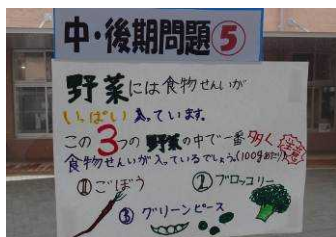 中・後期問題⑤
野菜には食物せんいが
いっぱい入っています。
この3つの野菜の中で一番多く
食物せんいが入っているでしょう。(100gあたり)
①ごぼう
②ブロッコリー
③グリーンピース